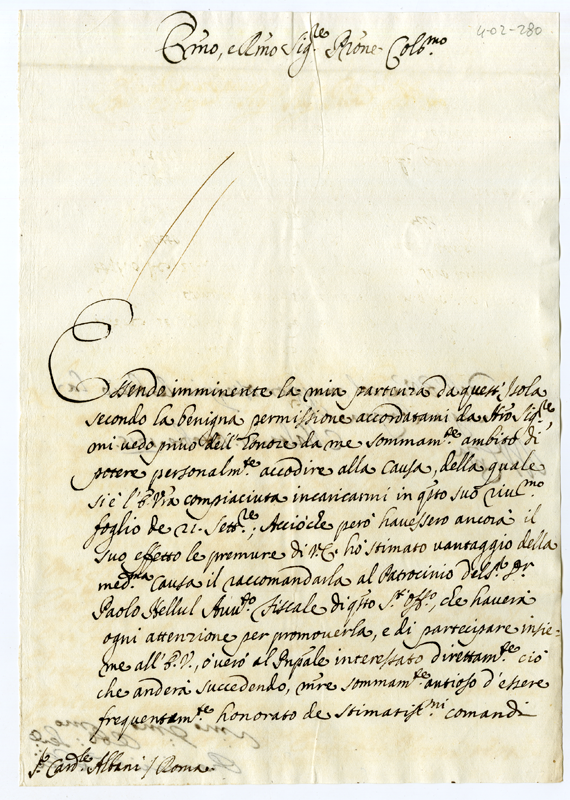 4-02-280
Emo, e Rmo Sig.re Prone Colb.mo
Essendo imminente la mia partenza da quest'Isola
secondo la benigna permissione accordatami da Nro Sig.re
mi vedo privo dell'honore da me sommam.te ambito di
potere personalm.te accodire alla Causa, della quale
si è l'E. Vra compiaciuta incaricarmi in qsto suo riv.mo
foglio de 21. Sett.re; Acciòche però havessero ancora il
suo effetto le premure di V.E. hò stimato vantaggio della
med.ma Causa il raccomandarla al Patrocinio del S.r Dr.
Paolo Vellul Avv.to Fiscale di qsto S.t Off.o, che haverà
ogni attenzione per promoverla, e di partecipare insie-
me all'E.V., ò verò al Pnpale interessato direttam.te ciò
che anderà succedendo, mre sommam.te antioso d'essere
frequentam.te honorato de stimatiss.mi comandi
S.r Card.le Albani / Roma